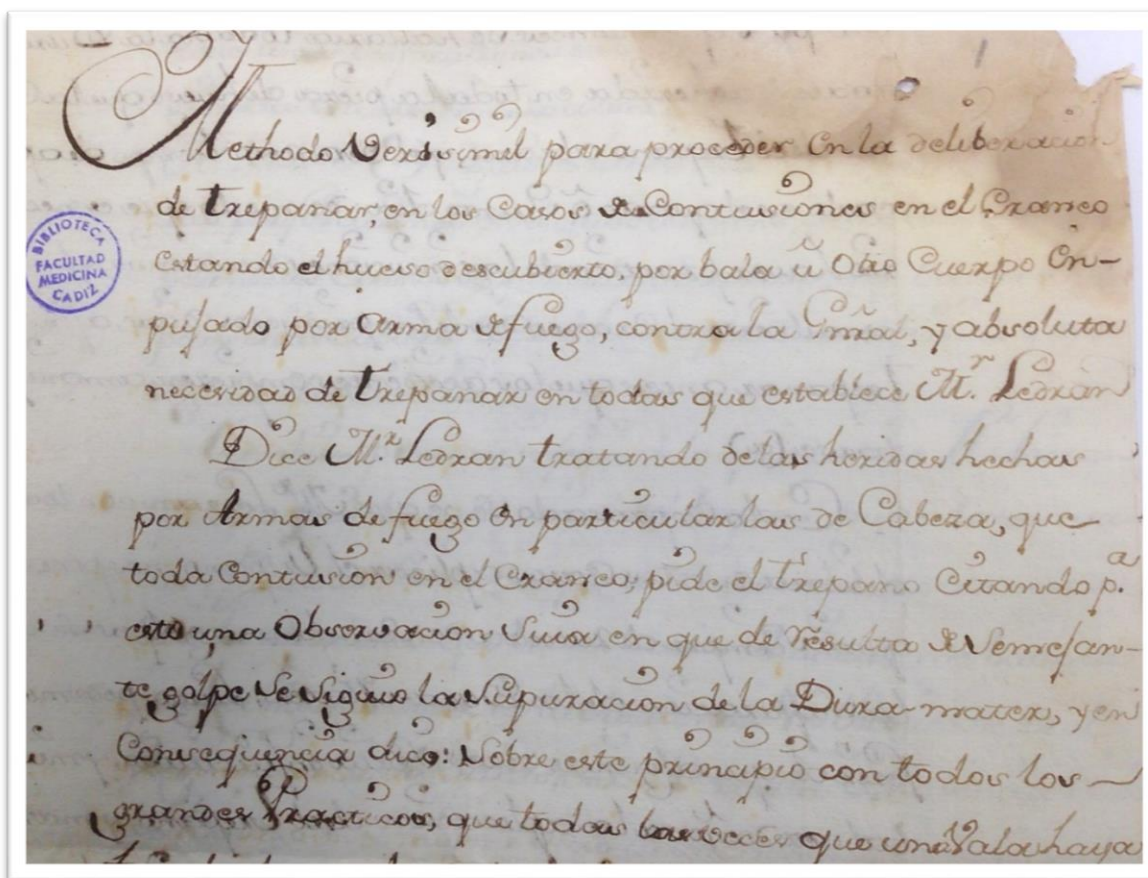 Methodo Verisimil para proceder en la deliberacion
de trepanar, en los Casos de Contusiones en el Craneo
estando el hueso descubierto, por bala ù Otro Cuerpo En-
pusado por Arma de fuego, contra la Gmrãl, y absoluta
necesidad de trepanar en todas que establece M.r Ledran
Dice M.r Ledran tratando de las heridas hechas
por Armas de fuego en particular las de Cabeza, que
toda Contusion en el Craneo, pide el trepano Citando p.a
esto una Observacion Suia en que de resulta de Semejan-
te golpe Se siguio la Supuracion de la Dura mater, y en
Consequencia dice: Sobre este principio con todos los
grandes Practicos, que todas las veces que una Vala haya
BIBLIOTECA
FACULTAD
MEDICINA
CADIZ